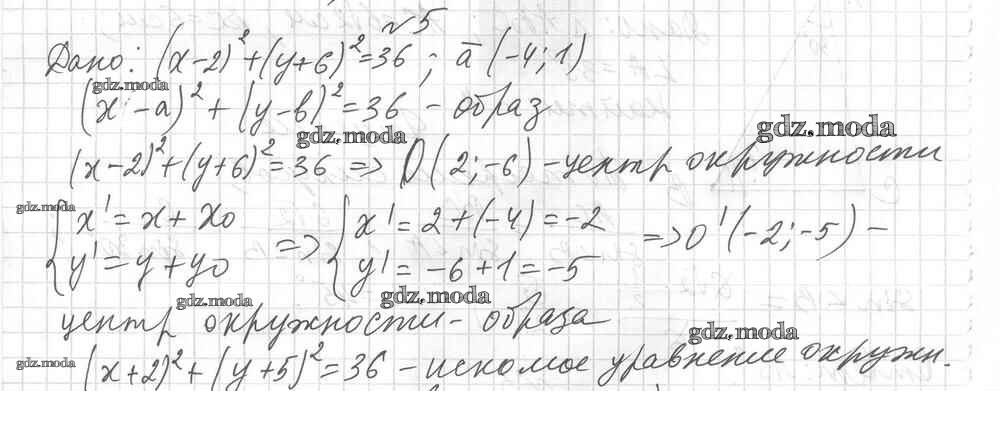 №5
Дано: (x-2)²+(y+6)²=36; ā (-4; 1)
gdz.moda
(x-a)²+(y-b)²=36 - образ
gdz.moda
gdz.moda
(x-2)²+(y+6)²=36 => O(2;-6) -центр окружности
gdz.moda
{x'=x+x0 => {x'=2+(-4)=-2 => O'(-2;-5) -
{y'=y+y0 {y'=-6+1=-5
gdz.moda
gdz.moda
центр окружности- образа
gdz.moda
gdz.moda
(x+2)²+(y+5)²=36 -искомое уравнение окружн.